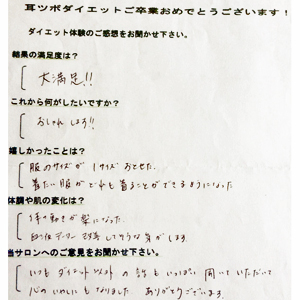 耳ツボダイエットご卒業おめでとうございます！
ダイエット体験のご感想をお聞かせ下さい。
結果の満足度は？
大満足!!
これから何がしたいですか？
おしゃれします!!
嬉しかったことは？
服のサイズが1サイズおとせた。
着たい服がどれも着ることができるようになった
体調や肌の変化は？
体の動きが楽になった。
改善してそうな気がします。
当サロンへのご意見をお聞かせ下さい。
いつもダイエット以外の話もいっぱい聞いていただいて
心のいやしにもなりました。ありがとうございます。